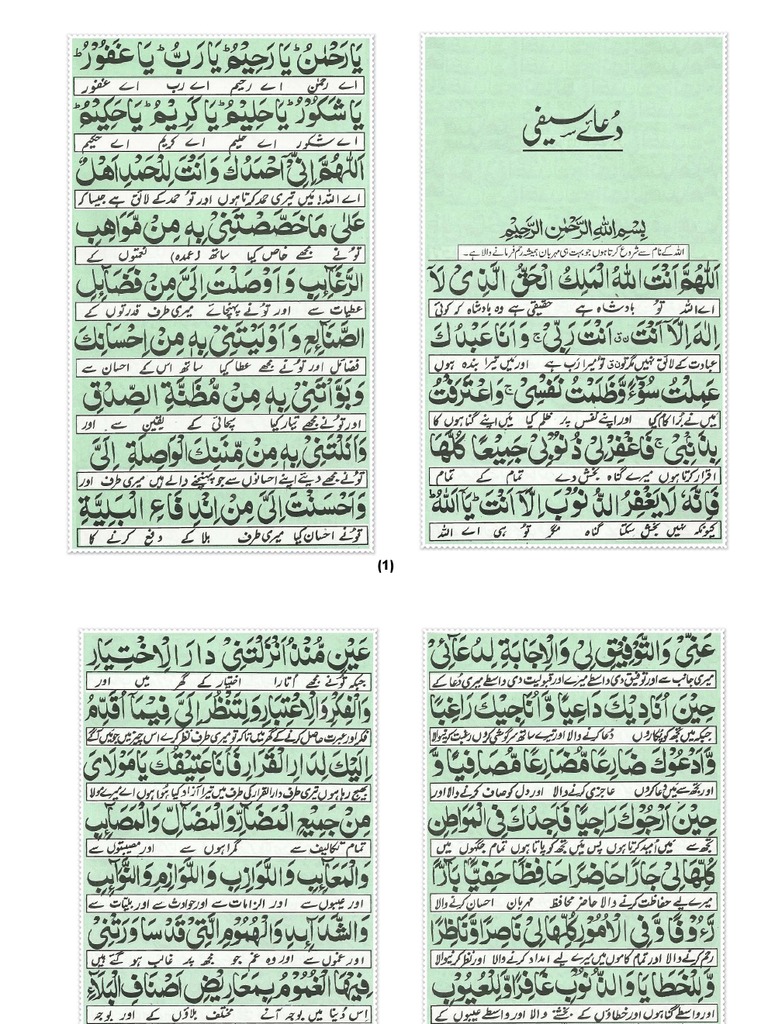 دُعائے سیفی
بِسْمِ اللهِ الرَّحْمٰنِ الرَّحِيْمِ
اللہ کے نام سے شروع کرتا ہوں جو بہت ہی مہربان ہمیشہ رحم فرمانے والا ہے۔
اَللّٰهُمَّ اَنْتَ اللهُ الْمَلِكُ الْحَقُّ الَّذِىْ لَآ
اے اللہ تُو بادشاہ ہے حقیقی ہے وہ بادشاہ کہ کوئی
اِلٰهَ اِلَّآ اَنْتَ اَنْتَ رَبِّىْ ج وَاَنَا عَبْدُكَ
عبادت کے لائق نہیں مگر تو تُو میرا رب ہے اور میں تیرا بندہ ہوں
عَمِلْتُ سُوْٓءًا وَّظَلَمْتُ نَفْسِىْ ج وَاعْتَرَفْتُ
میں نے بُرا کام کیا اور اپنے نفس پر ظلم کیا میں اپنے گناہوں کا
بِذَنْبِىْ ج فَاغْفِرْلِىْ ذُنُوْبِىْ جَمِيْعًا كُلَّهَا
اقرار کرتا ہوں میرے گناہ بخش دے تمام کے تمام
فَاِنَّهٗ لَا يَغْفِرُ الذُّنُوْبَ اِلَّآ اَنْتَ يَآ اَللهُ
کیونکہ نہیں بخش سکتا گناہ مگر تُو ہی اے اللہ
يَا رَحْمٰنُ يَا رَحِيْمُ يَا رَبُّ يَا غَفُوْرُ
اے رحمٰن اے رحیم اے رب اے غفور
يَا شَكُوْرُ يَا حَلِيْمُ يَا كَرِيْمُ يَا حَكِيْمُ
اے شکور اے حلیم اے کریم اے حکیم
اَللّٰهُمَّ اِنِّىْٓ اَحْمَدُكَ وَاَنْتَ لِلْحَمْدِ اَهْلٌ
اے اللہ! میں تیری حمد کرتا ہوں اور تو حمد کے لائق ہے جیسا کہ
عَلٰى مَا خَصَّصْتَنِىْ بِهٖ مِنْ مَّوَاهِبِ
تُو نے مجھے خاص کیا ساتھ (عمدہ) نعمتوں کے
الرَّغَآئِبِ وَاَوْصَلْتَ اِلَىَّ مِنْ فَضَآئِلِ
عطیات سے اور تو نے پہنچائے میری طرف قدرتوں کے
الصَّنَآئِعِ وَاَوْلَيْتَنِىْ بِهٖ مِنْ اِحْسَانِكَ
فضائل اور تو نے مجھے عطا کیا ساتھ اس کے احسان سے
وَبَوَّاْتَنِىْ بِهٖ مِنْ مَّظَنَّةِ الصِّدْقِ
اور تو نے مجھے تیار کیا سچائی کے یقین سے اور
وَاَنَلْتَنِىْ بِهٖ مِنْ مِّنَنِكَ الْوَاصِلَةِ اِلَىَّ
تُو نے مجھے دیئے اپنے احسانوں سے جو پہنچنے والے ہیں میری طرف اور
وَاَحْسَنْتَ اِلَىَّ مِنْ اِنْدِفَاعِ الْبَلِيَّةِ
تُو نے احسان کیا میری طرف بلا کے دفع کرنے کا
(1)
عَنِّىْ وَالتَّوْفِيْقِ لِىْ وَالْاِجَابَةِ لِدُعَآئِىْ
میری جانب سے اور توفیق دی واسطے میرے اور قبولیت دی واسطے میری دعا کے
حِيْنَ اُنَادِيْكَ دَاعِيًا وَّاُنَاجِيْكَ رَاغِبًا
وَّاَدْعُوْكَ ضَارِعًا مُّضَارِعًا مُّصَافِيًا وَّ
حِيْنَ اَرْجُوْكَ رَاجِيًا فَاَجِدُكَ فِى الْمَوَاطِنِ
تجھ سے میں اُمید کرتا ہوں پس میں تجھ کو پاتا ہوں تمام جگہوں میں
كُلِّهَا لِىْ جَارًا حَاضِرًا حَافِظًا حَفِيًّا بَآرًّا
میرے لیے حفاظت کرنے والا حاضر محافظ مہربان احسان کرنے والا
رَّءُوْفًا وَّفِى الْاُمُوْرِ كُلِّهَا لِىْ نَاصِرًا وَّنَاظِرًا
رحم کرنے والا اور تمام کاموں میں میرے لیے امداد کرنے والا اور نظر کرنیوالا
وَّلِلْخَطَايَا وَالذُّنُوْبِ غَافِرًا وَّلِلْعُيُوْبِ
اور واسطے گناہوں اور خطاؤں کے بخشنے والا اور واسطے عیبوں کے
عَيْنٍ مُّنْذُ اَنْزَلْتَنِىْ دَارَ الْاِخْتِيَارِ
جبکہ تُو نے مجھے اُتارا اختیار کے گھر میں اور
وَالْفِكْرِ وَالْاِعْتِبَارِ وَلِتَنْظُرَ اِلَىَّ فِيْمَآ اُقَدِّمُ
اِلَيْكَ لِدَارِ الْقَرَارِ فَاَنَا عَتِيْقُكَ يَا مَوْلَاىَ
مِنْ جَمِيْعِ الْمَضَآرِّ وَالْمَضَآلِّ وَالْمَصَآئِبِ
تمام تکالیف سے گمراہوں سے اور مصیبتوں سے
وَالْمَعَآئِبِ وَاللَّوَازِبِ وَاللَّوَازِمِ وَالنَّوَآئِبِ
اور عیبوں سے اور الزامات سے اور حوادث سے اور بلیّات سے
وَالشَّدَآئِدِ وَالْهُمُوْمِ الَّتِىْ قَدْ سَاوَرَتْنِىْ
اور غموں سے اور وہ غم جو مجھ پر غالب ہو گئے ہیں
فِيْهَا الْغُمُوْمُ بِمَعَارِيْضِ اَصْنَافِ الْبَلَآءِ